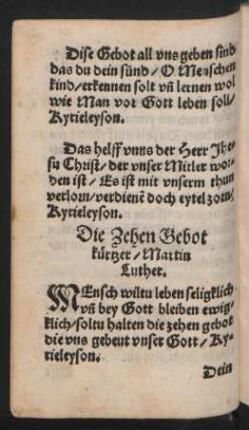 Dise Gebot all vns geben sind
das du dein sünd / O Menschen
kind / erkennen solt vñ lernen wol
wie Man vor Gott leben soll /
Kyrieleyson.
Das helff vnns der Herr Jhe-
su Christ / der vnser Mitler wor-
den ist / Es ist mit vnserm thun
verlorn / verdienẽ doch eytel zorn /
Kyrieleyson.
Die Zehen Gebot
kürtzer / Martin
Luther.
MEnsch wiltu leben seligklich /
vñ bey Gott bleiben ewig-
klich / soltu halten die zehen gebot
die vns gebeut vnser Gott / Ky-
rieleyson.
Dein